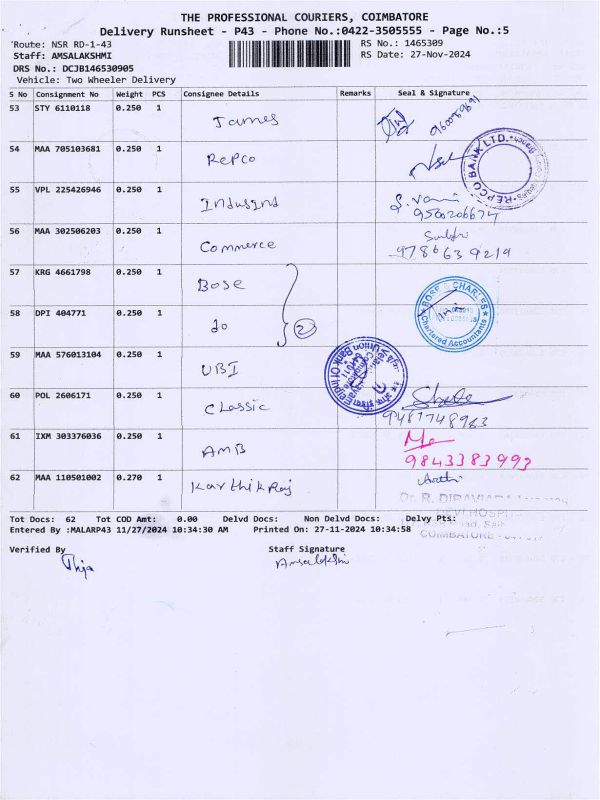 THE PROFESSIONAL COURIERS, COIMBATORE
Delivery Runsheet - P43 - Phone No.:0422-3505555 - Page No.:5
Route: NSR RD-1-43
RS No.: 1465309
Staff: AMSALAKSHMI
RS Date: 27-Nov-2024
DRS No.: DCJB146530905
Vehicle: Two Wheeler Delivery
S No Consignment No Weight PCS Consignee Details Remarks Seal & Signature
53 STY 6110118 0.250 1 James
54 MAA 705103681 0.250 1 Repco
REPCO BANK LTD.
55 VPL 225426946 0.250 1 Indusind
9500206674
56 MAA 302506203 0.250 1 Commerce
9786639219
57 KRG 4661798 0.250 1 Bose
BOSE & CHARLES
Chartered Accountants
58 DPI 404771 0.250 1 do 2
59 MAA 576013104 0.250 1 UBI
Union Bank Of India
60 POL 2606171 0.250 1 Classic
9487748963
61 IXM 303376036 0.250 1 AMB
9843383993
62 MAA 110501002 0.270 1 Karthik Raj
Dr. R. DIRAVIA
COIMBATORE
Tot Docs: 62 Tot COD Amt: 0.00 Delvd Docs: Non Delvd Docs: Delvy Pts:
Entered By :MALARP43 11/27/2024 10:34:30 AM Printed On: 27-11-2024 10:34:58
Verified By Staff Signature
Thija Amsalakshmi